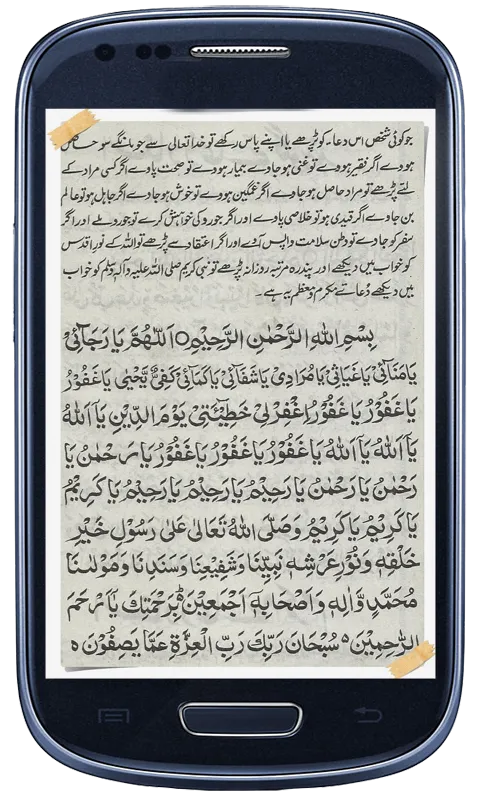 جو کوئی شخص اس دعاء کو پڑھے یا اپنے پاس رکھے تو خدا تعالیٰ سے جو مانگے سو حاصل
ہووے اگر فقیر ہووے تو غنی ہو جاوے بیمار ہووے تو صحت پاوے اگر کسی مراد کے
لئے پڑھے تو مراد حاصل ہو جاوے اگر غمگین ہووے تو خوش ہو جاوے اگر جاہل ہو تو عالم
بن جاوے اگر قیدی ہو تو خلاصی پاوے اور اگر جورو کی خواہش کرے تو جورو ملے اور اگر
سفر کو جاوے تو وطن سلامت واپس آئے اور اگر اعتقاد سے پڑھے تو اللہ کے نور اقدس
کو خواب میں دیکھے اور پندرہ مرتبہ روزانہ پڑھے تو نبی کریم صلی اللہ علیہ وآلہ وسلم کو خواب
میں دیکھے دُعائے مکرم و معظم یہ ہے۔
بِسْمِ اللهِ الرَّحْمٰنِ الرَّحِيْمِ○ اَللّٰهُمَّ يَا رَجَآئِىْ
يَا مَنَآئِىْ يَا غِيَاثِىْ يَا مُرَادِىْ يَا شَفَآئِىْ يَا كَفَآئِىْ كَفِىٌّ يُّحْيٰى يَا غَفُوْرُ
يَا غَفُوْرُ يَا غَفُوْرُ اغْفِرْ لِىْ خَطِيْئَتِىْ يَوْمَ الدِّيْنِ يَآ اَللهُ
يَآ اَللهُ يَآ اَللهُ يَا غَفُوْرُ يَا غَفُوْرُ يَا غَفُوْرُ يَا رَحْمٰنُ يَا
رَحْمٰنُ يَا رَحْمٰنُ يَا رَحِيْمُ يَا رَحِيْمُ يَا رَحِيْمُ يَا كَرِيْمُ
يَا كَرِيْمُ يَا كَرِيْمُ وَصَلَّى اللهُ تَعَالٰى عَلٰى رَسُوْلِ خَيْرِ
خَلْقِهٖ وَنُوْرِ عَرْشِهٖ نَبِيِّنَا وَشَفِيْعِنَا وَسَنَدِنَا وَمَوْلٰنَا
مُحَمَّدٍ وَّاٰلِهٖ وَاَصْحَابِهٖٓ اَجْمَعِيْنَ ط بِرَحْمَتِكَ يَآ اَرْحَمَ
الرّٰحِمِيْنَ ٥ سُبْحَانَ رَبِّكَ رَبِّ الْعِزَّةِ عَمَّا يَصِفُوْنَ ٥